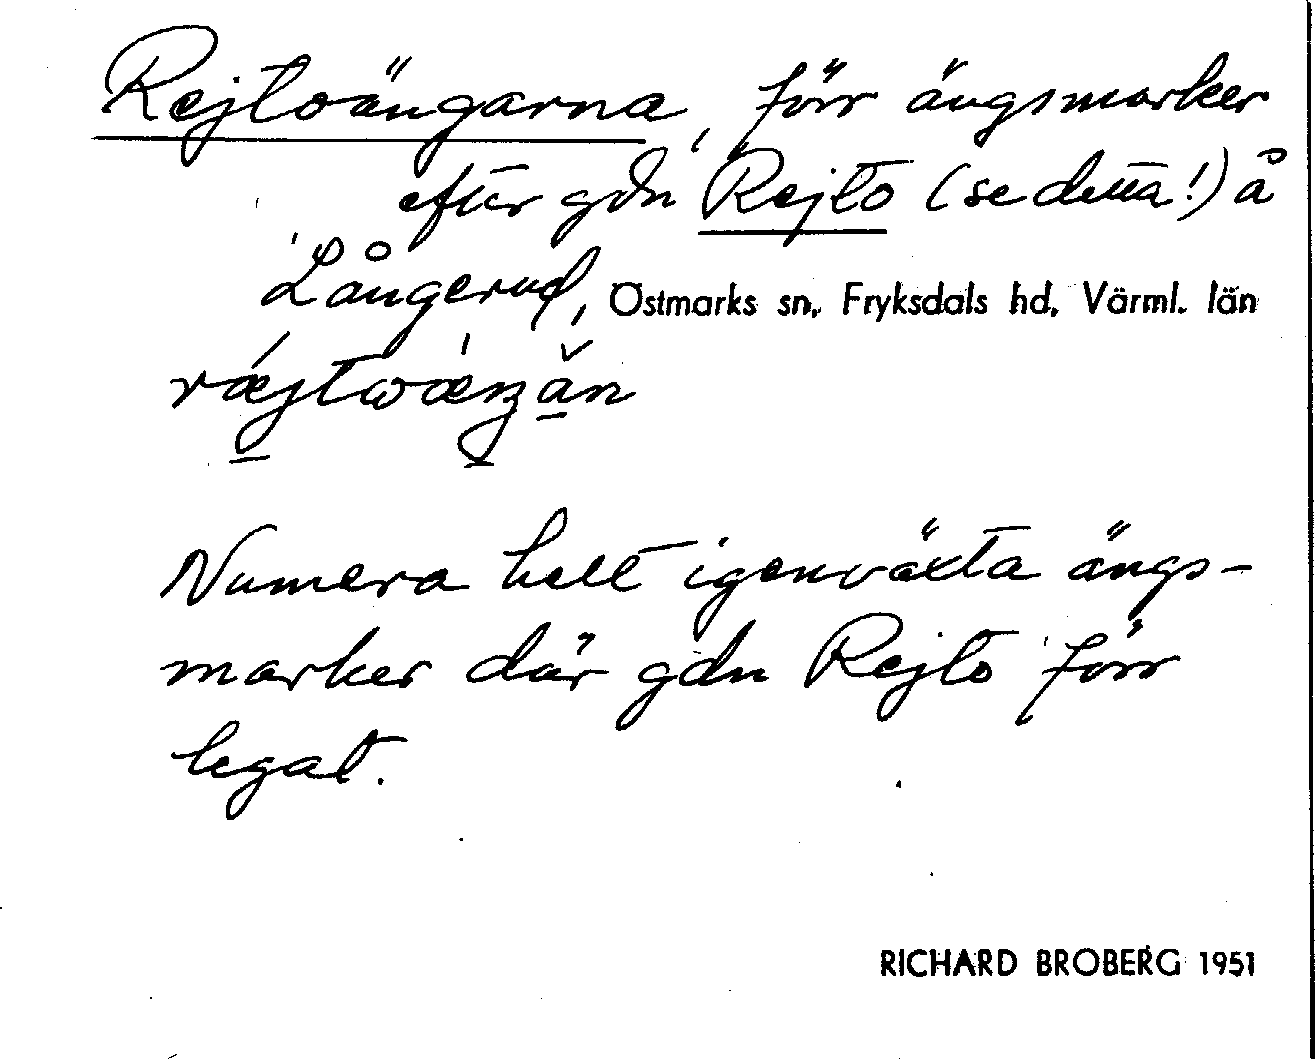 Rejtoängarna, förr ängsmarker
efter gdn Rejto (se detta!) å
Långerud, Östmarks sn, Fryksdals hd, Värml. län
Numera helt igenväxta ängs-
marker där gdn Rejto förr
legat.
RICHARD BROBERG 1951